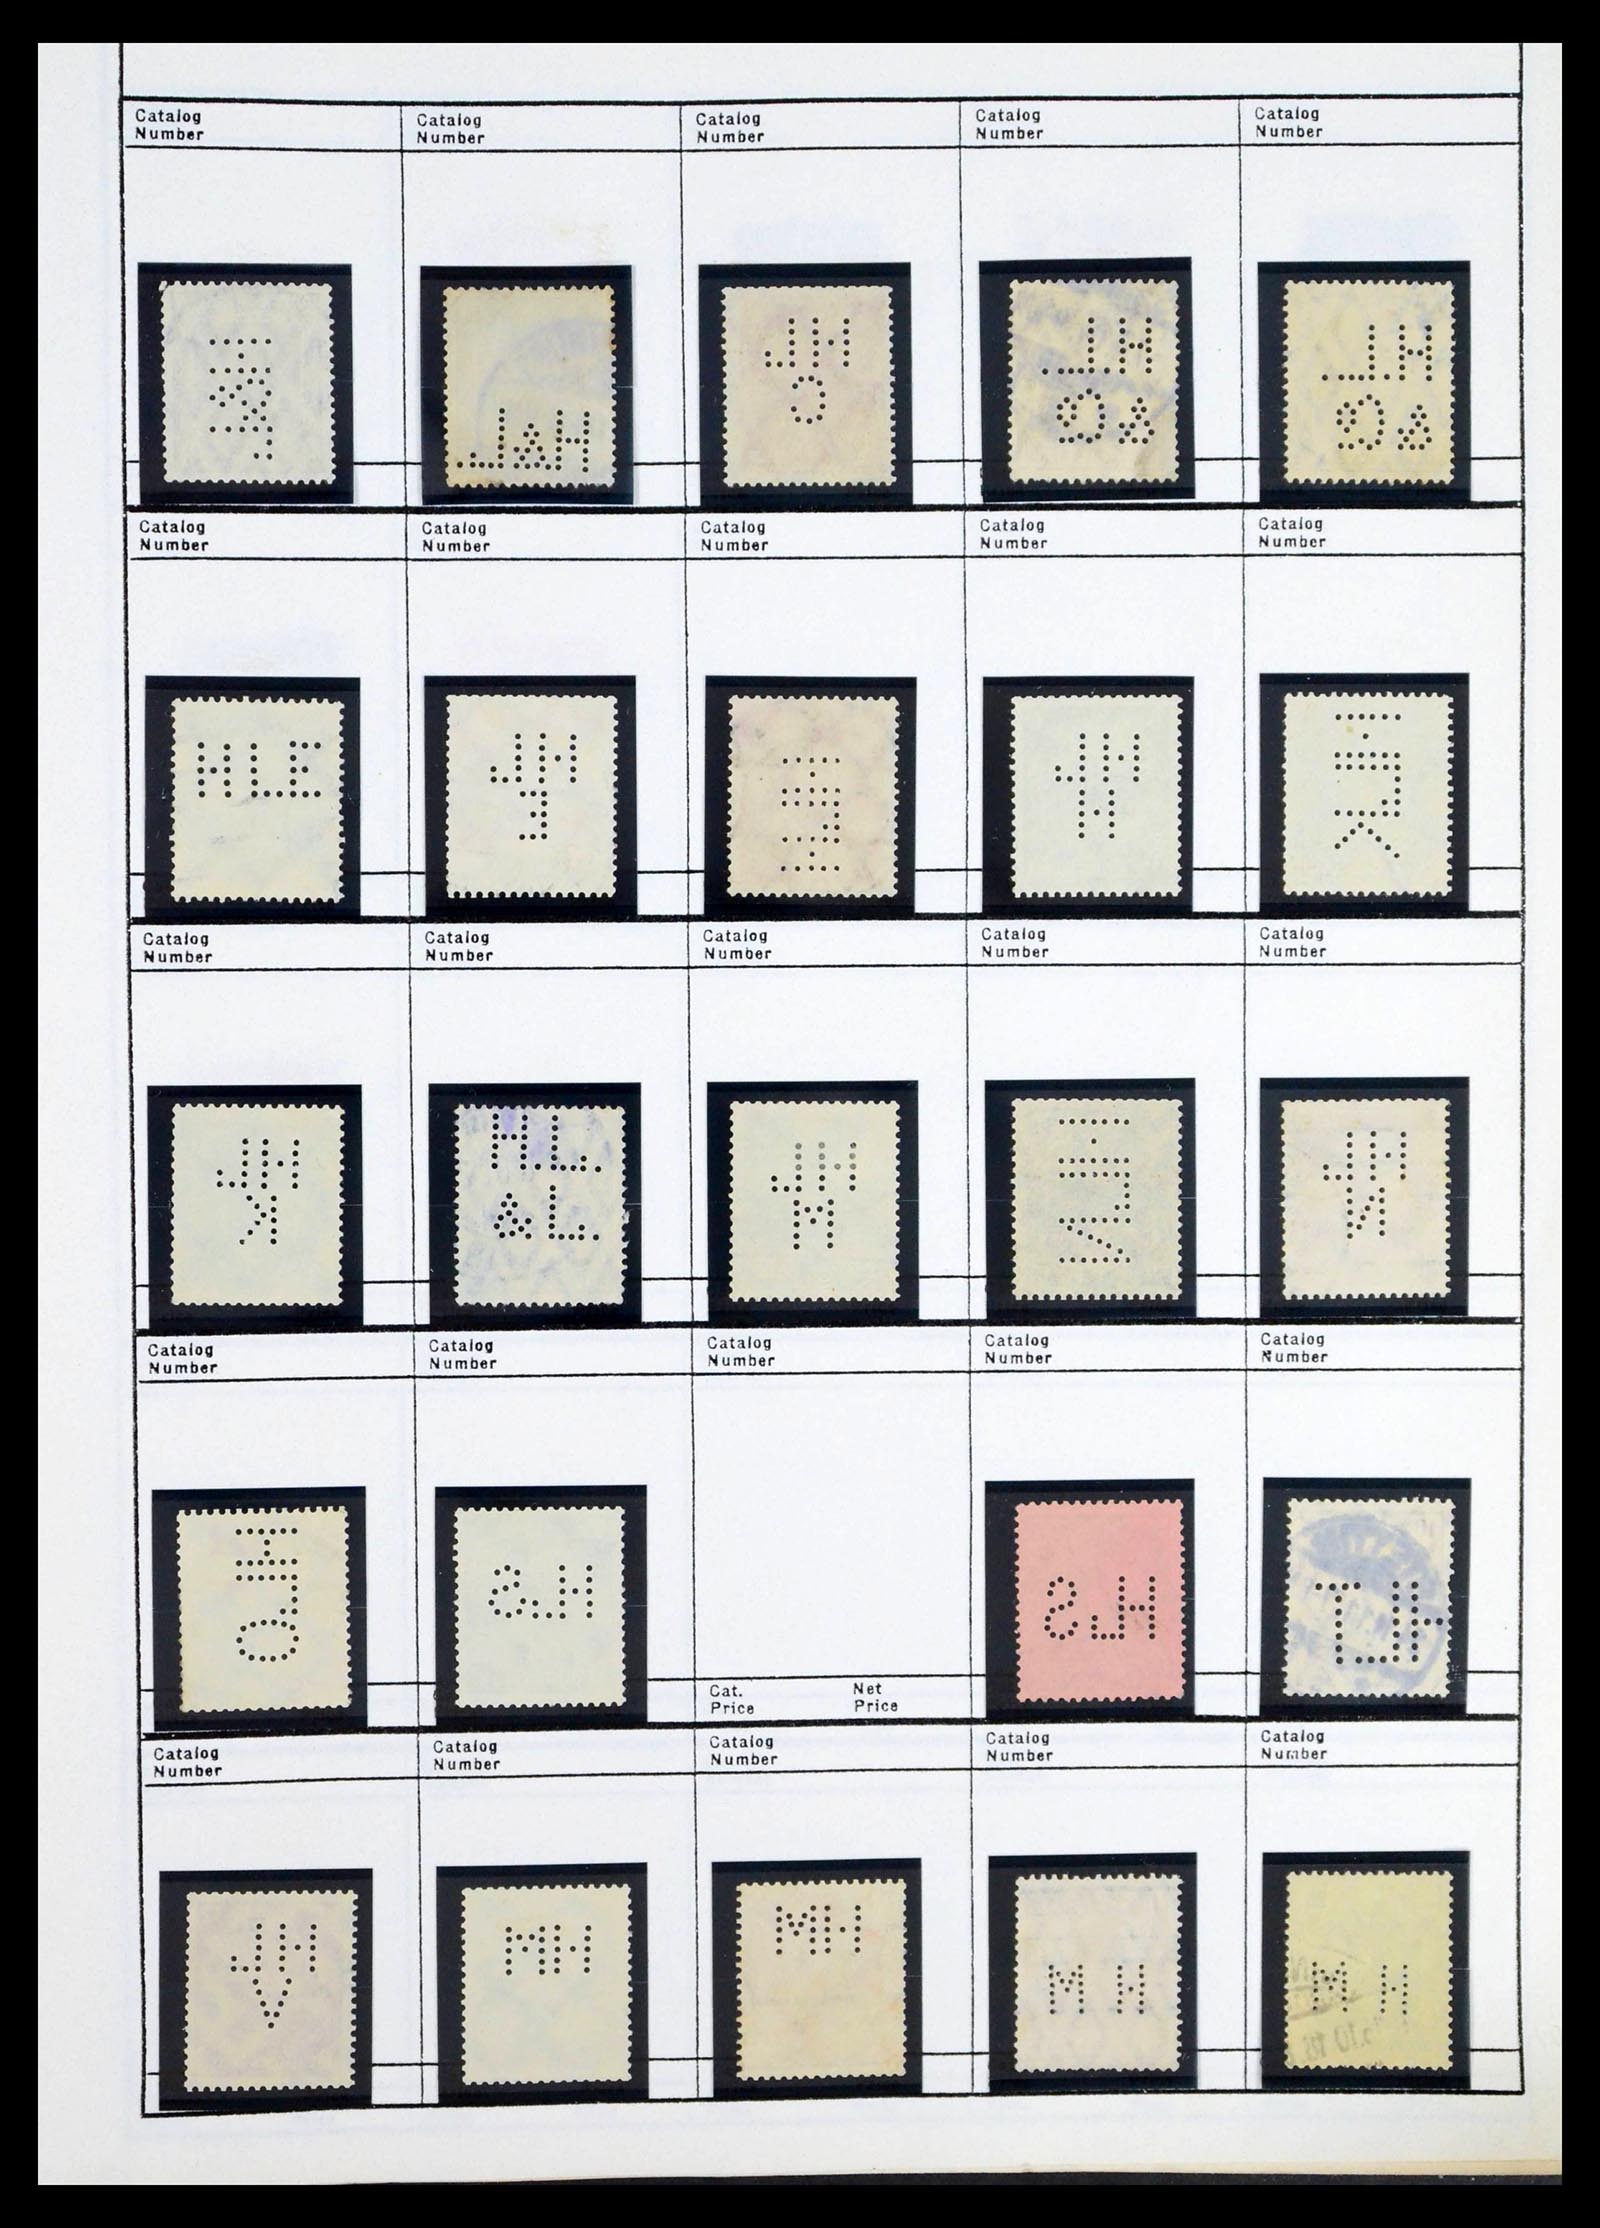 Catalog Number
Catalog Number
Catalog Number
Catalog Number
Catalog Number
H&L
H&L.
HL
C
HL
HL
&G
Catalog Number
Catalog Number
Catalog Number
Catalog Number
Catalog Number
HLE
HL
E
HL
H
HLK
Catalog Number
Catalog Number
Catalog Number
Catalog Number
Catalog Number
HL
K
H.L.
&L.
HL
M
HLN
HL
N
Catalog Number
Catalog Number
Catalog Number
Catalog Number
Catalog Number
HLS
HLS
HLT
Cat. Price Net Price
Catalog Number
Catalog Number
Catalog Number
Catalog Number
Catalog Number
HL
V
HM
HM
HM
HM